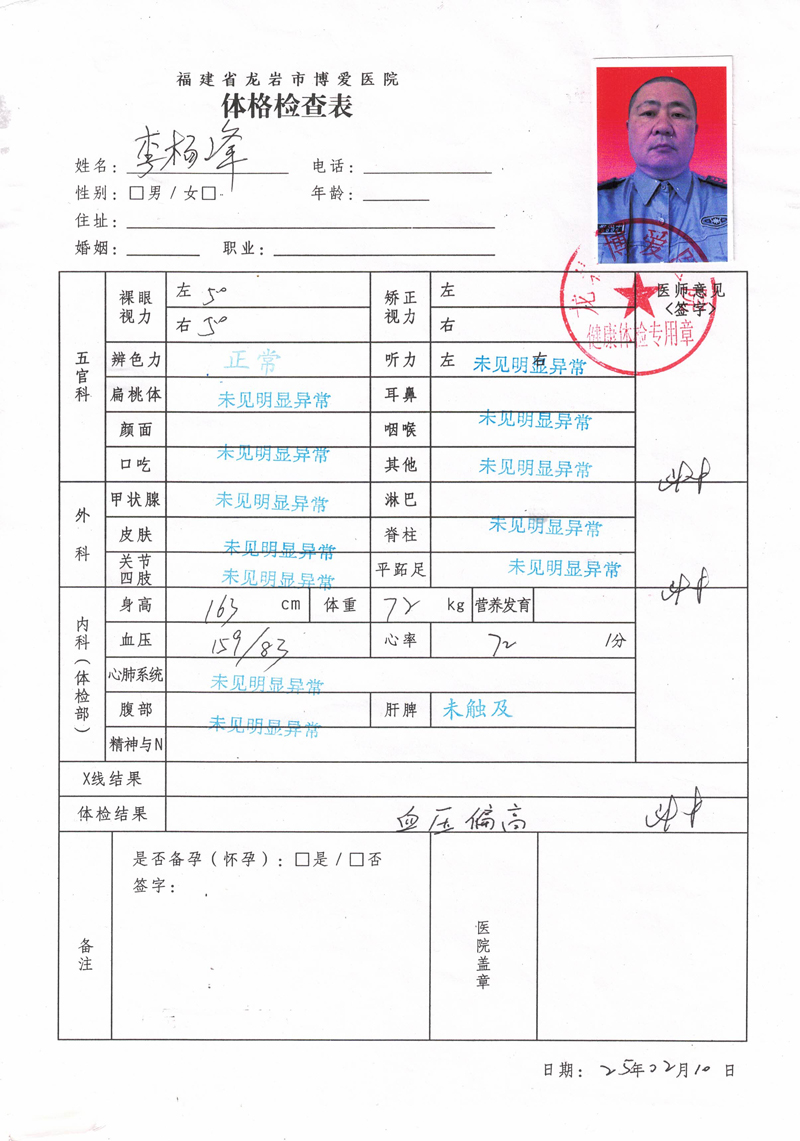 福建省龙岩市博爱医院
体格检查表
姓名: 李杨峰 电话:
性别: □男 / 女□ 年龄:
住址:
婚姻: 职业:
五官科 裸眼视力 左 5.0 矫正视力 左 医师意见<签字>
右 5.0 右
辨色力 正常 听力 左 未见明显异常 右
扁桃体 未见明显异常 耳鼻
颜面 咽喉 未见明显异常
口吃 未见明显异常 其他 未见明显异常
外科 甲状腺 未见明显异常 淋巴
皮肤 未见明显异常 脊柱 未见明显异常
关节四肢 未见明显异常 平跖足 未见明显异常
内科(体检部) 身高 163 cm 体重 72 kg 营养发育
血压 159/83 心率 72 1分
心肺系统 未见明显异常
腹部 未见明显异常 肝脾 未触及
精神与N
X线结果
体检结果 血压偏高
备注 是否备孕(怀孕): □是 / □否 医院盖章
签字:
日期: 25年02月10日
健康体检专用章